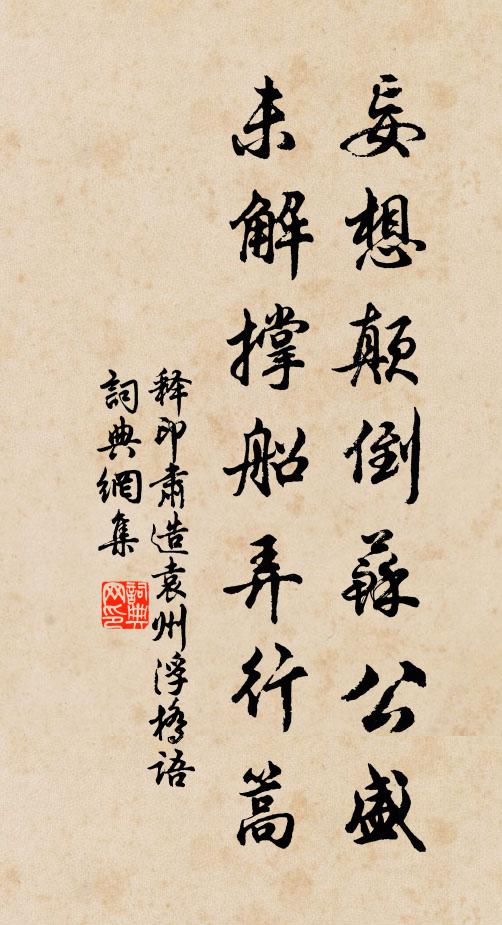 妄想颠倒苏公盛
未解撑船弄行篙
释印肃造袁州浮桥语
词典网集
词典网印